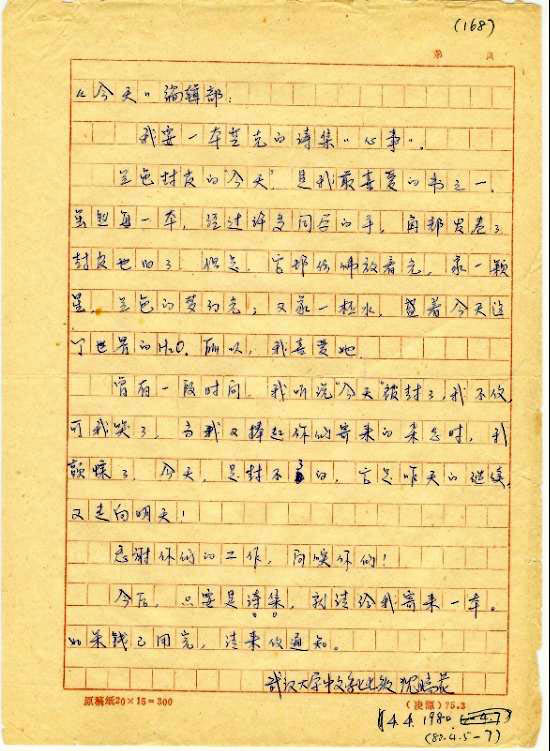 (168)
第 页
《今天》编辑部:
我要一本芒克的诗集"心事"。
兰色封皮的"今天"是我最喜爱的书之一。
虽然每一本,经过许多同志的手,角都发卷了
封皮也旧了 但是,它都仿佛放着光,象一颗
星,兰色的梦幻光;又象一杯水,盛着今天这
个世界的H2O。所以,我喜爱她
曾有一段时间,我听说"今天"被封了,我不信,
可我哭了,当我又捧起你们寄来的 时,我
颤慄了,今天,是封不了的,它是昨天的继续,
又走向明天!
感谢你们的工作,问候你们!
今后,只要是诗集,就请给我寄来一本。
如果钱已用完,请来信通知。
武汉大学中文系
原稿纸20×15=300
(凌源)75.3
14.4.1980
(80.4.5-7)